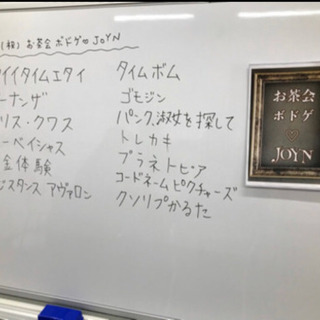 (株) お茶会ボドゲ♡JOYN
イイタイムエタイ
ーナンザ
リス・クワス
ーペイシャス
金体験
ジスタンス アヴァロン
タイムボム
ゴモジン
パンク、淑女を探して
トレカキ
プラネトピア
コードネームピクチャーズ
クソリプかるた
お茶会
ボドゲ
JOYN